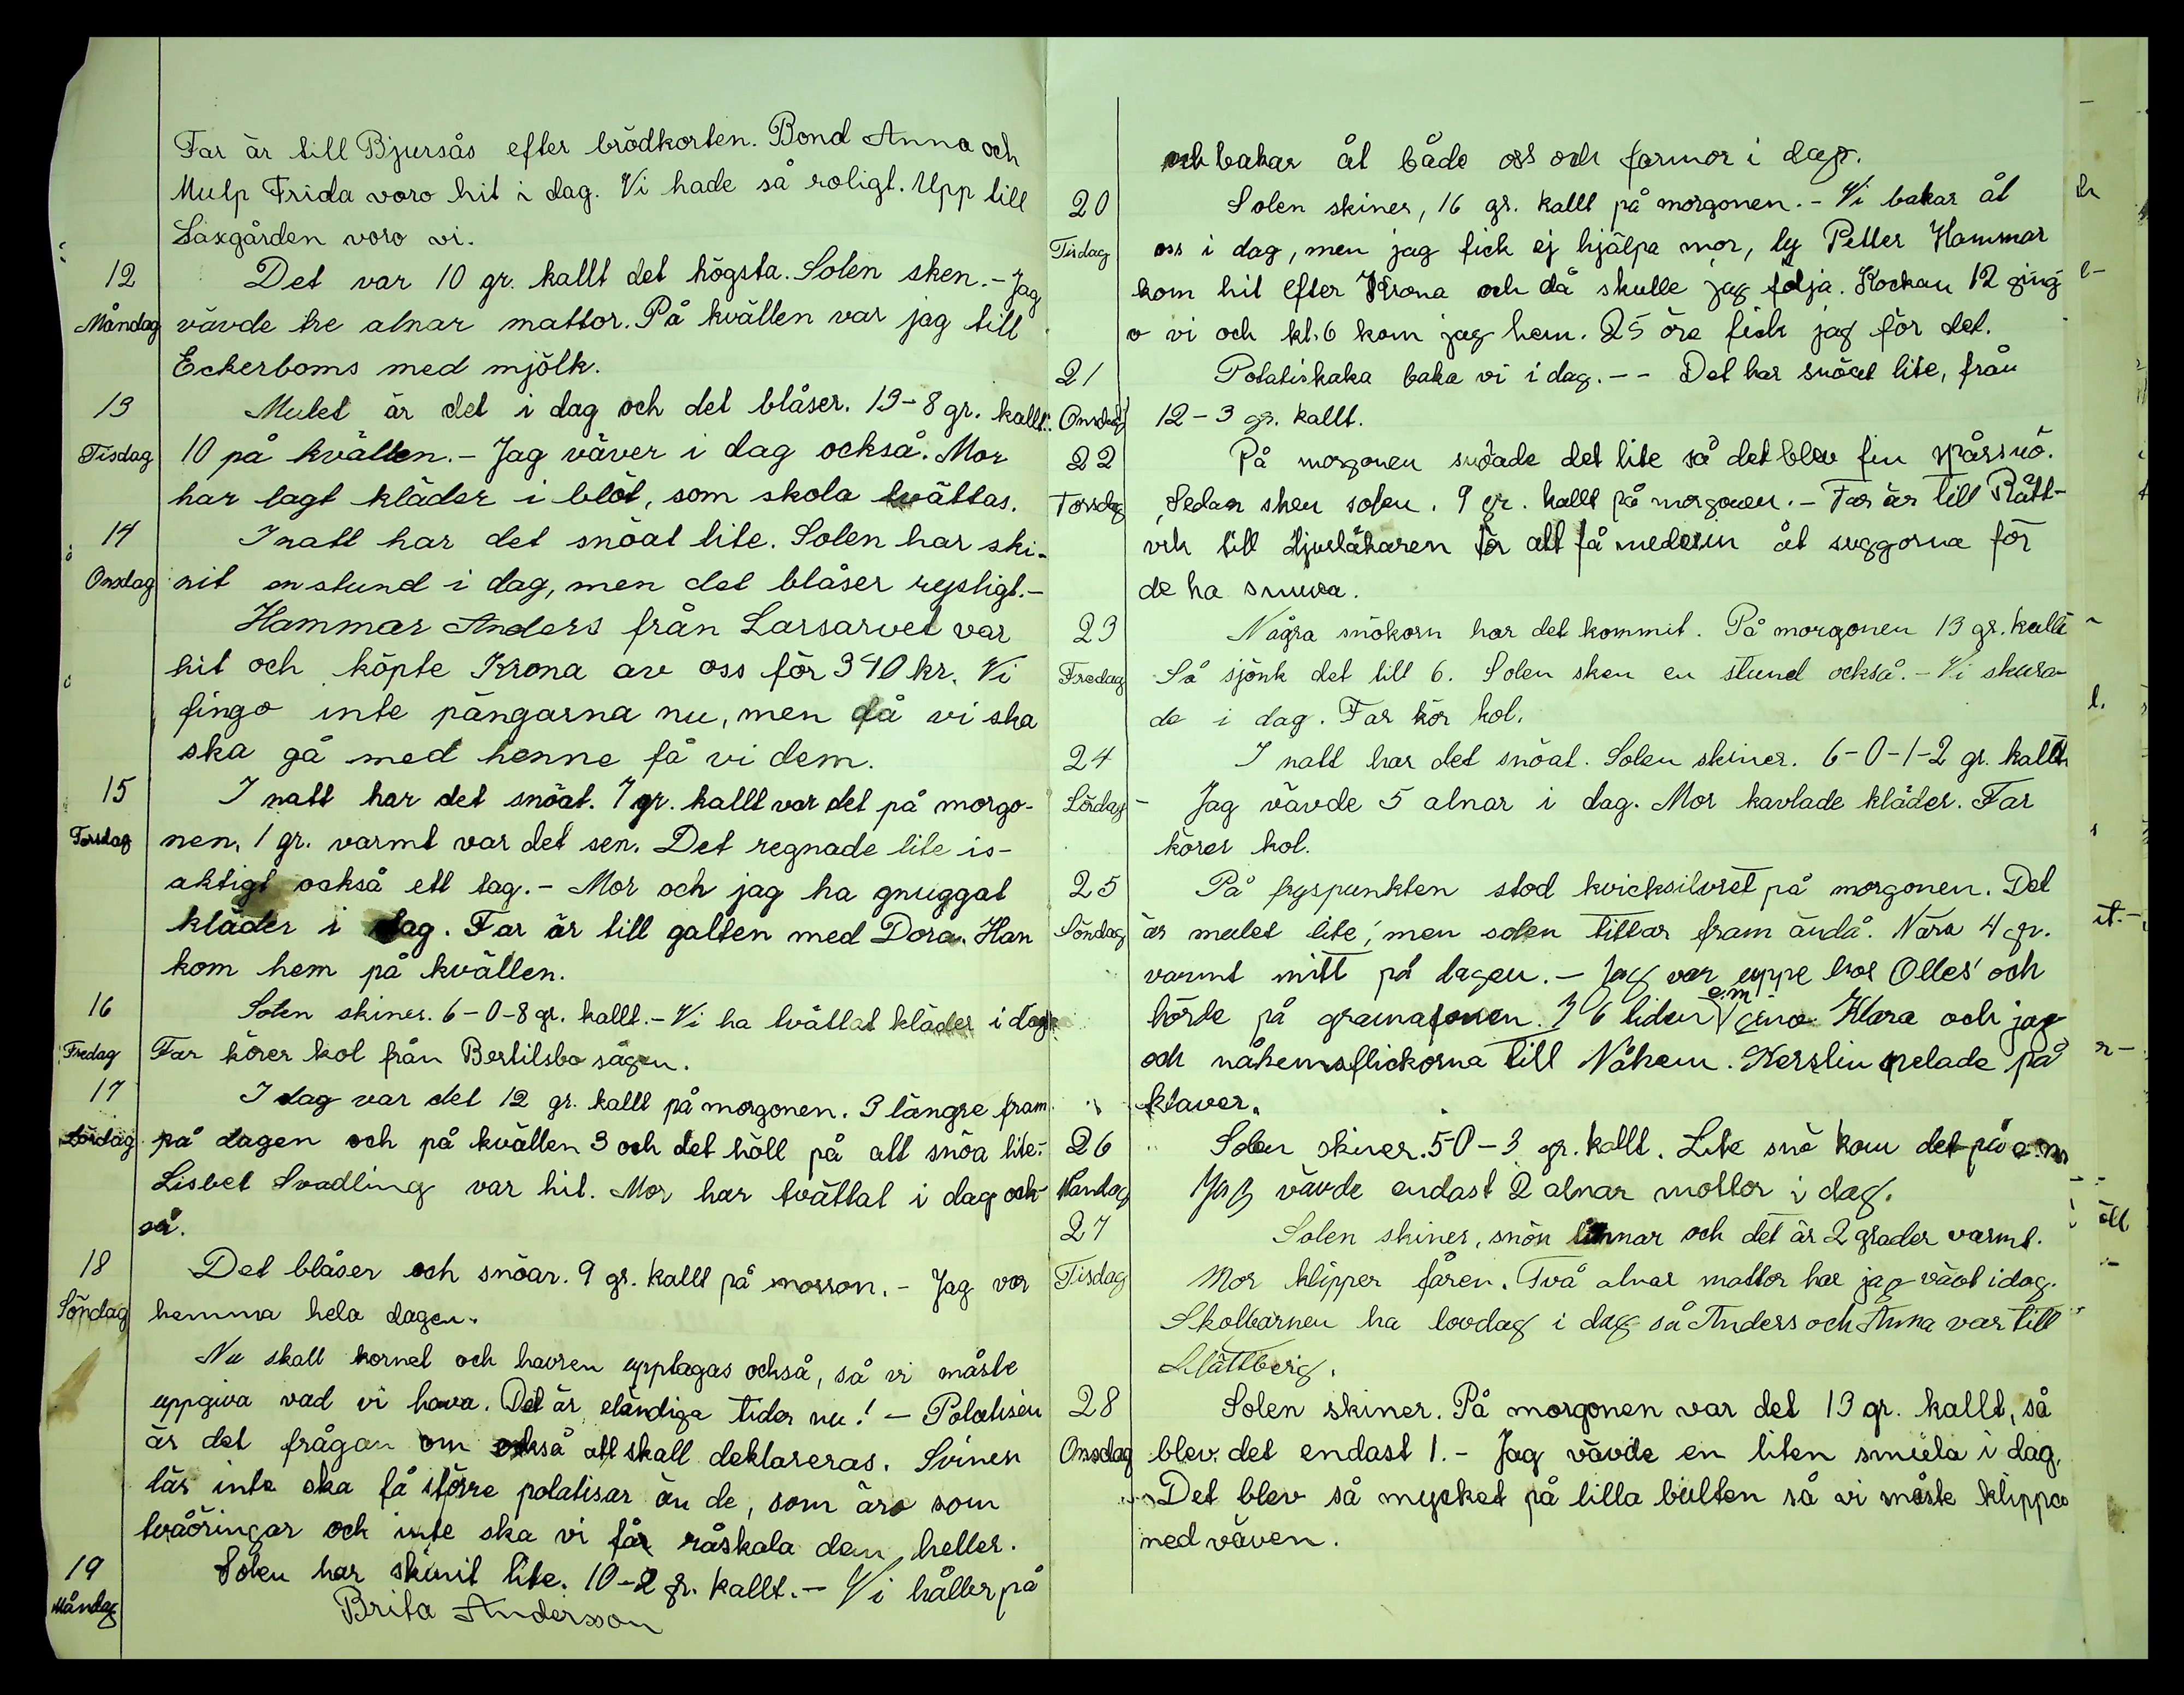 Far är till Bjursås efter brödkorten. Bond Anna och
Mulp Frida voro hit i dag. Vi hade så roligt. Upp till
Saxgården voro vi.
12 Det var 10 gr. kallt det högsta. Solen sken. - Jag
Måndag vävde tre alnar mattor. På kvällen var jag till
Eckerboms med mjölk.
13 Mulet är det i dag och det blåser. 13-8 gr. kallt.
Tisdag 10 på kvällen. - Jag väver i dag också. Mor
har lagt kläder i blöt, som skola tvättas.
14 I natt har det snöat lite. Solen har ski-
Onsdag nit en stund i dag, men det blåser rysligt. -
Hammar Anders från Larsarvet var
hit och köpte Krona av oss för 340 kr. Vi
fingo inte pängarna nu, men då vi ska
ska gå med henne få vi dem.
15 I natt har det snöat. 7 gr. kallt var det på morgo-
Torsdag nen, 1 gr. varmt var det sen. Det regnade lite is-
aktigt också ett tag. - Mor och jag ha gnuggat
kläder i dag. Far är till galten med Dora. Han
kom hem på kvällen.
16 Solen skiner. 6-0-8 gr. kallt. - Vi ha tvättat kläder i dag.
Fredag Far körer kol från Bertilsbo sågen.
17 I dag var det 12 gr. kallt på morgonen. 3 längre fram
Lördag på dagen och på kvällen 3 och det höll på att snöa lite. -
Lisbet Svadling var hit. Mor har tvättat i dag ock-
så.
18 Det blåser och snöar. 9 gr. kallt på morron. - Jag var
Söndag hemma hela dagen.
Nu skall kornet och havren upptagas också, så vi måste
uppgiva vad vi hava. Det är eländiga tider nu! - Potatisen
är det frågan om också att skall deklareras. Svinen
lär inte ska få större potatisar än de, som äro som
tvåöringar och inte ska vi får råskala den heller.
19 Solen har skinit lite. 10-2 gr. kallt. - Vi håller på
Måndag
Brita Andersson
och bakar åt både oss och farmor i dag.
20 Solen skiner, 16 gr. kallt på morgonen. - Vi bakar åt
Tisdag oss i dag, men jag fick ej hjälpa mor, ty Petter Hammar
kom hit efter Krona och då skulle jag följa. Klockan 12 ging
o vi och kl. 6 kom jag hem. 25 öre fick jag för det.
21 Potatiskaka baka vi i dag. - - Det har snöat lite, från
Onsdag 12-3 gr. kallt.
22 På morgonen snöade det lite så det blev fin spårsnö.
Torsdag Sedan sken solen. 9 gr. kallt på morgonen. - Far är till Rätt-
vik till djurläkaren för att få medesin åt suggorna för
de ha snuva.
23 Några snökorn har det kommit. På morgonen 13 gr. kallt
Fredag Så sjönk det till 6. Solen sken en stund också. - Vi skura-
de i dag. Far kör kol.
24 I natt har det snöat. Solen skiner. 6-0-1-2 gr. kallt
Lördag - Jag vävde 5 alnar i dag. Mor kavlade kläder. Far
körer kol.
25 På fryspunkten stod kvicksilvret på morgonen. Det
Söndag är mulet lite, men solen tittar fram ändå. Nära 4 gr.
varmt mitt på dagen. - Jag var uppe hos Olles och
hörde på gramafonen. I 6 tiden e.m. Klara och jag
och nåhemsflickorna till Nåhem. Kerstin spelade på
klaver.
26 Solen skiner. 5-0-3 gr. kallt. Lite snö kom det på e.m
Måndag Jag vävde endast 2 alnar mattor i dag.
27 Solen skiner, snön linnar och det är 2 grader varmt.
Tisdag Mor klipper fåren. Två alnar mattor har jag vävt i dag.
Skolbarnen ha lovdag i dag så Anders och Anna var till
Slättberg.
28 Solen skiner. På morgonen var det 13 gr. kallt, så
Onsdag blev det endast 1. - Jag vävde en liten smula i dag.
Det blev så mycket på lilla bulten så vi måste klippa
ned väven.